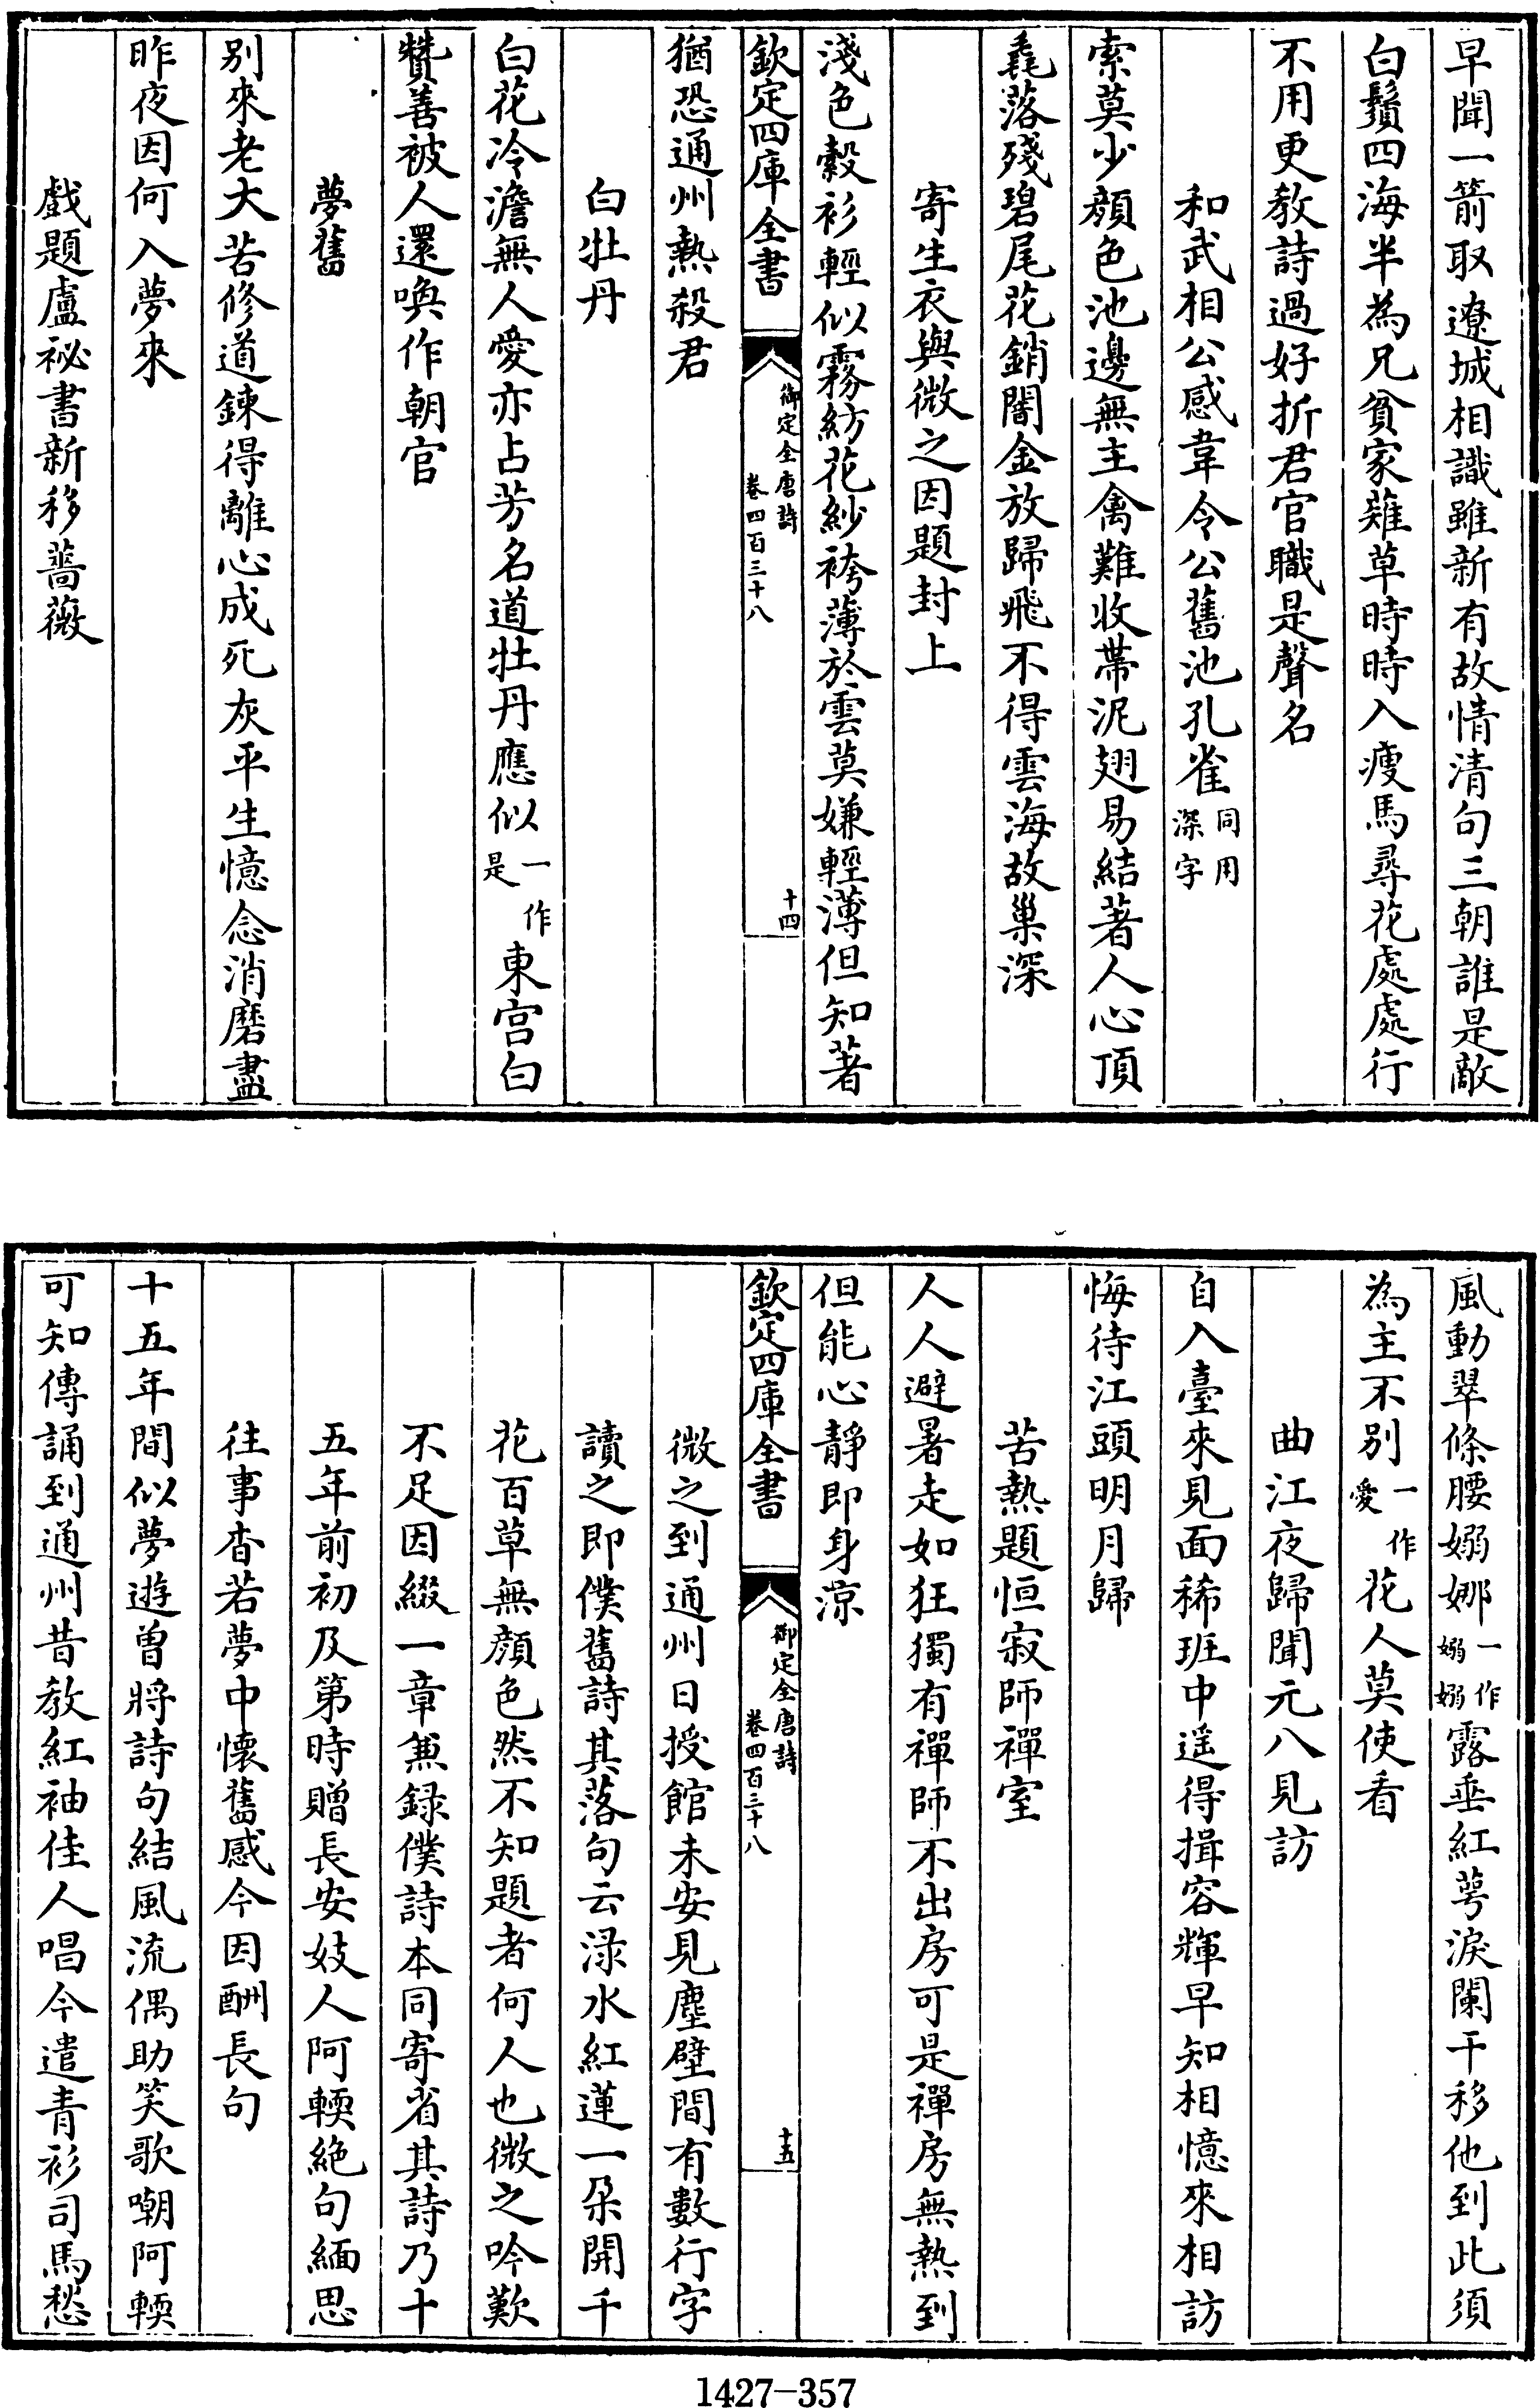 早聞一箭取遼城相識雖新有故情清句三朝誰是敵
白鬚四海半為兄貧家薙草時時入瘦馬尋花處處行
不用更教詩過好折君官職是聲名
和武相公感韋令公舊池孔雀同用深字
索莫少顏色池邊無主禽難收帶泥翅易結著人心頂
毳落殘碧尾花銷闇金放歸飛不得雲海故巢深
寄生衣與微之因題封上
淺色縠衫輕似霧紡花紗袴薄於雲莫嫌輕薄但知著
欽定四庫全書 御定全唐詩卷四百三十八 十四
猶恐通州熱殺君
白牡丹
白花冷澹無人愛亦占芳名道牡丹應似一作是東宮白
贊善被人還喚作朝官
夢舊
別來老大苦修道鍊得離心成死灰平生憶念消磨盡
昨夜因何入夢來
戲題盧祕書新移薔薇
風動翠條腰嫋娜一作嫋嫋露垂紅萼淚闌干移他到此須
為主不別一作愛花人莫使看
曲江夜歸聞元八見訪
自入臺來見面稀班中遥得揖容輝早知相憶來相訪
悔待江頭明月歸
苦熱題恒寂師禪室
人人避暑走如狂獨有禪師不出房可是禪房無熱到
但能心靜即身涼
欽定四庫全書 御定全唐詩卷四百三十八 十五
微之到通州日授館未安見塵壁間有數行字
讀之即僕舊詩其落句云渌水紅蓮一朵開千
花百草無顏色然不知題者何人也微之吟歎
不足因綴一章兼錄僕詩本同寄省其詩乃十
五年前初及第時贈長安妓人阿輭絕句緬思
往事杳若夢中懷舊感今因酬長句
十五年間似夢遊曾將詩句結風流偶助笑歌嘲阿輭
可知傳誦到通州昔教紅袖佳人唱今遣青衫司馬愁
1427-357